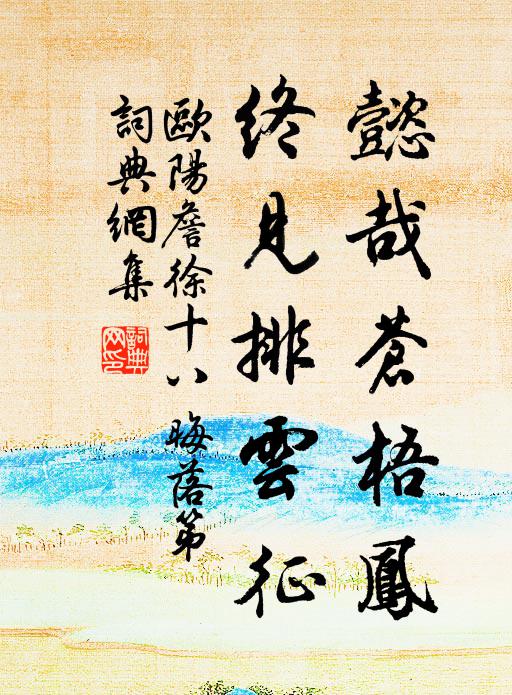 懿哉蒼梧鳳
終見排雲征
歐陽詹徐十八 晦落第
詞典網集
詞典網印